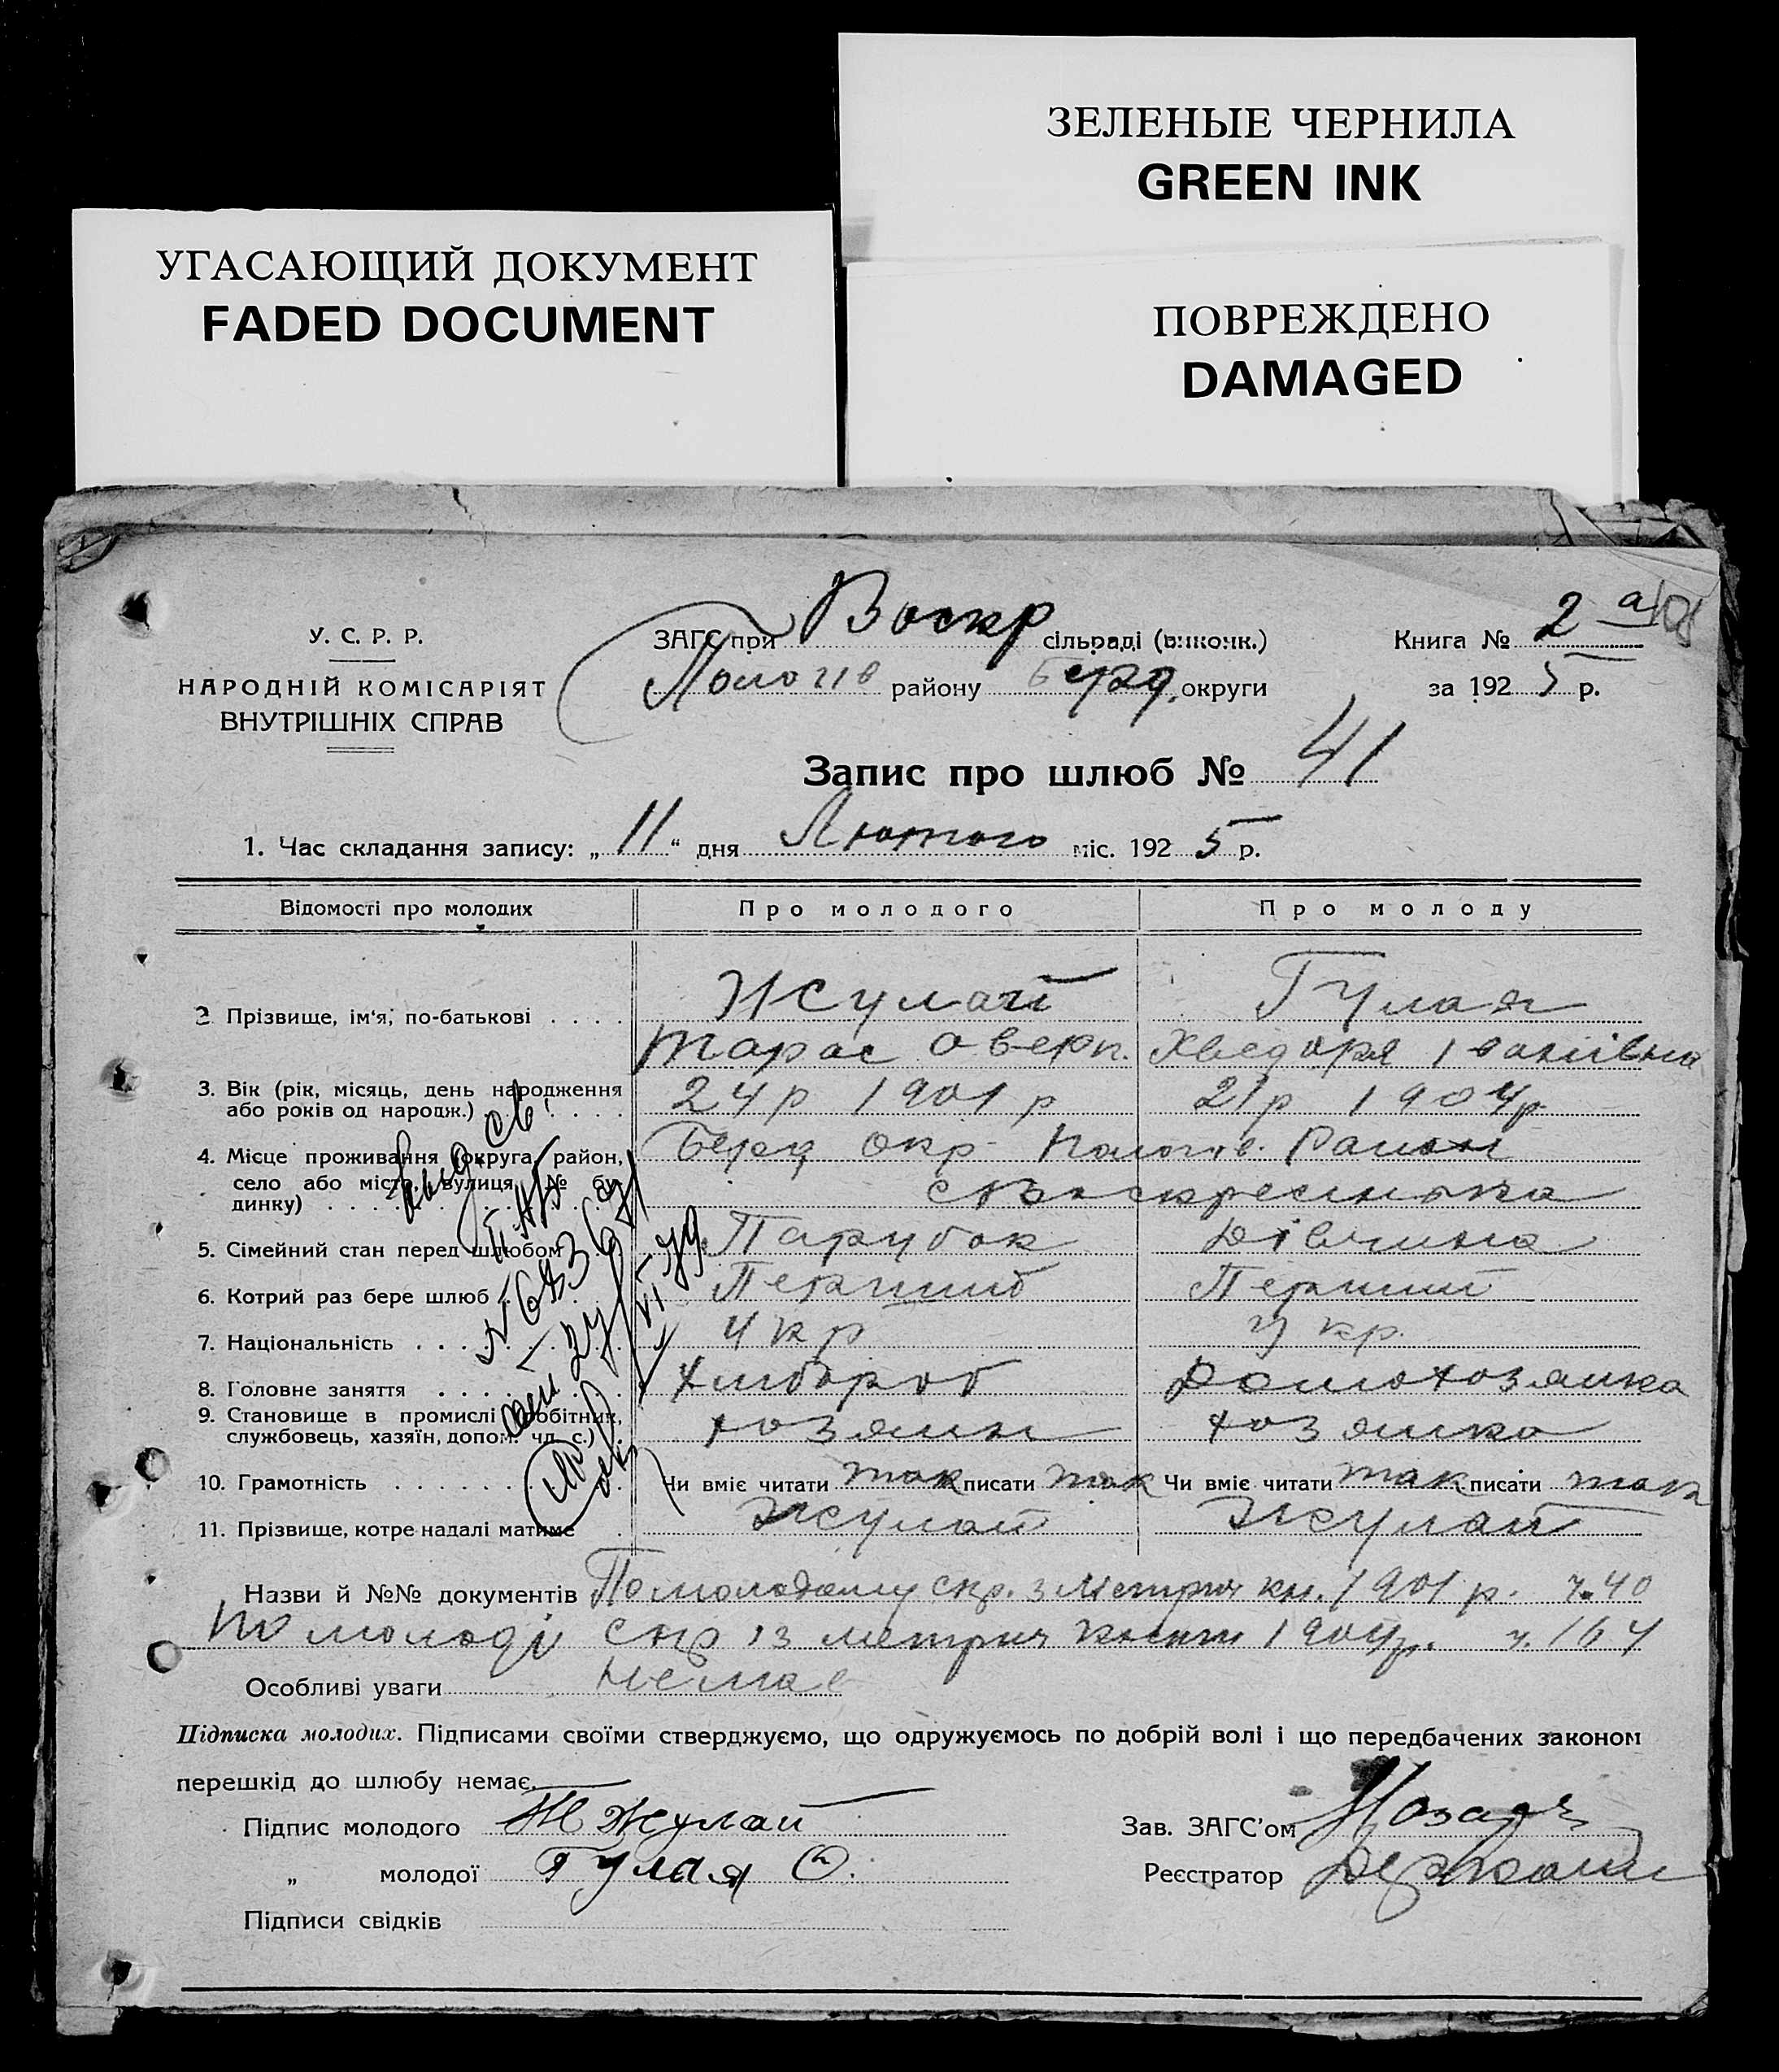 ЗЕЛЕНЫЕ ЧЕРНИЛА
GREEN INK
УГАСАЮЩИЙ ДОКУМЕНТ
FADED DOCUMENT
ПОВРЕЖДЕНО
DAMAGED
У. С. Р. Р.
НАРОДНІЙ КОМІСАРІЯТ
ВНУТРІШНІХ СПРАВ
ЗАГС при Воскр сільраді (виконк.)
Пологів району Берд. округи
Книга № 2 а
за 1925 р.
Запис про шлюб № 41
1. Час складання запису: „11“ дня Лютого міс. 1925 р.
Відомості про молодих Про молодого Про молоду
2 Прізвище, ім‘я, по-батькові . . . . Жулай Гулая
Тарас Аверк. Хведора Іванівна
3. Вік (рік, місяць, день народження
або років од народж.) . . . . 24 р 1901 р 21 р 1904 р.
4. Місце проживання (округа, район, Берд окр Пологів. Район
село або місто, вулиця, № бу-
динку) . . . . с Воскресенка
5. Сімейний стан перед шлюбом Парубок Дівчина
6. Котрий раз бере шлюб . . Перший Перший
7. Національність . . . . Укр Укр.
8. Головне заняття . . . . Хлібороб Домохозяйка
9. Становище в промислі (робітник,
службовець, хазяїн, допом. чл. с.) хозяин хозяйка
10. Грамотність . . . . . . . . Чи вміє читати так писати так Чи вміє читати так писати так
11. Прізвище, котре надалі матиме Жулай Жулай
Назви й №№ документів По молодому скр. з Метрич кн. 1901 р. ч. 40
по молоді скр із метрич книги 1904 р. ч. 164
Особливі уваги Немає
Підписка молодих. Підписами своїми стверджуємо, що одружуємось по добрій волі і що передбачених законом
перешкід до шлюбу немає.
Підпис молодого Жулай
„ молодої Гулая
Підписи свідків
Зав. ЗАГС’ом
Реєстратор